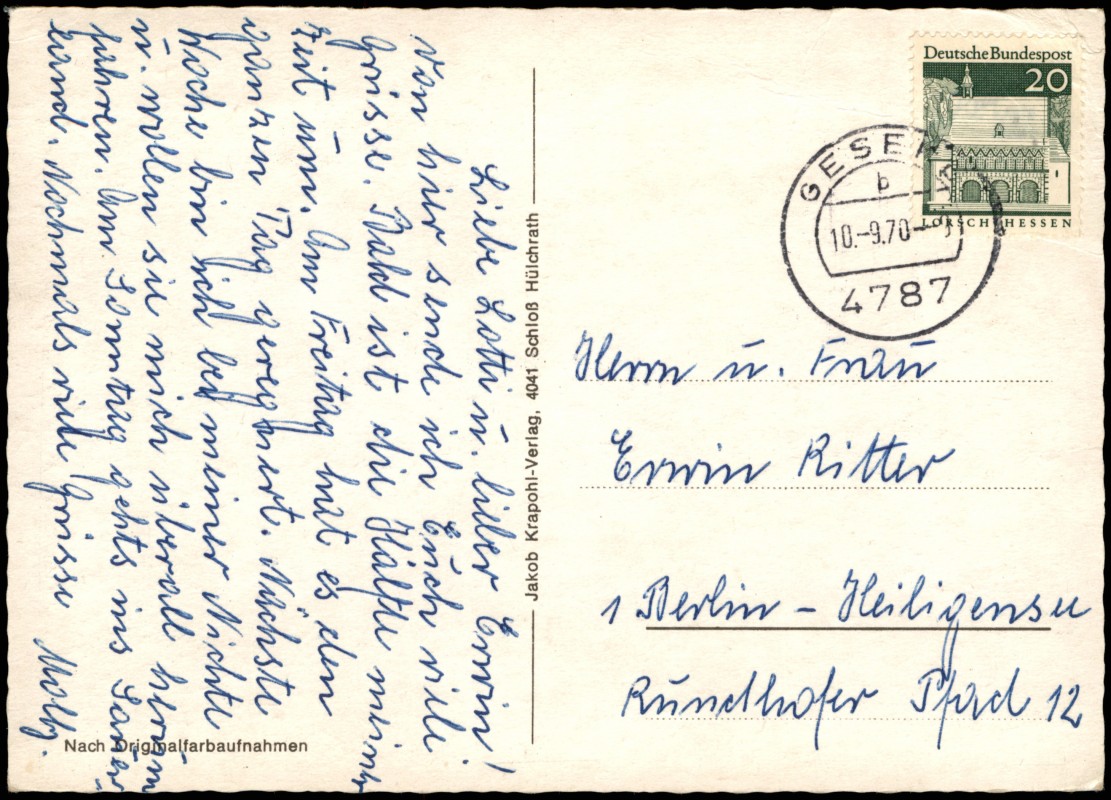 Liebe Lotti u. lieber Erwin!
Von hier sende ich Euch viele
Grüsse. Bald ist die Hälfte meiner
Zeit um. Am Freitag hat es den
ganzen Tag geregnert. Nächste
Woche bin ich bei meiner Nichte
u. wollen sie mich überall herum
fahren. Am Sonntag gehts ins Sauer=
land. Nochmals viele Grüsse Molly.
Nach Originalfarbaufnahmen
Jakob Krapohl-Verlag, 4041 Schloß Hülchrath
Deutsche Bundespost
20
LORSCH HESSEN
GESEKE
b
10.-9.70-
4787
Herrn u. Frau
Erwin Ritter
1 Berlin - Heiligensee
Rundhofer Pfad 12